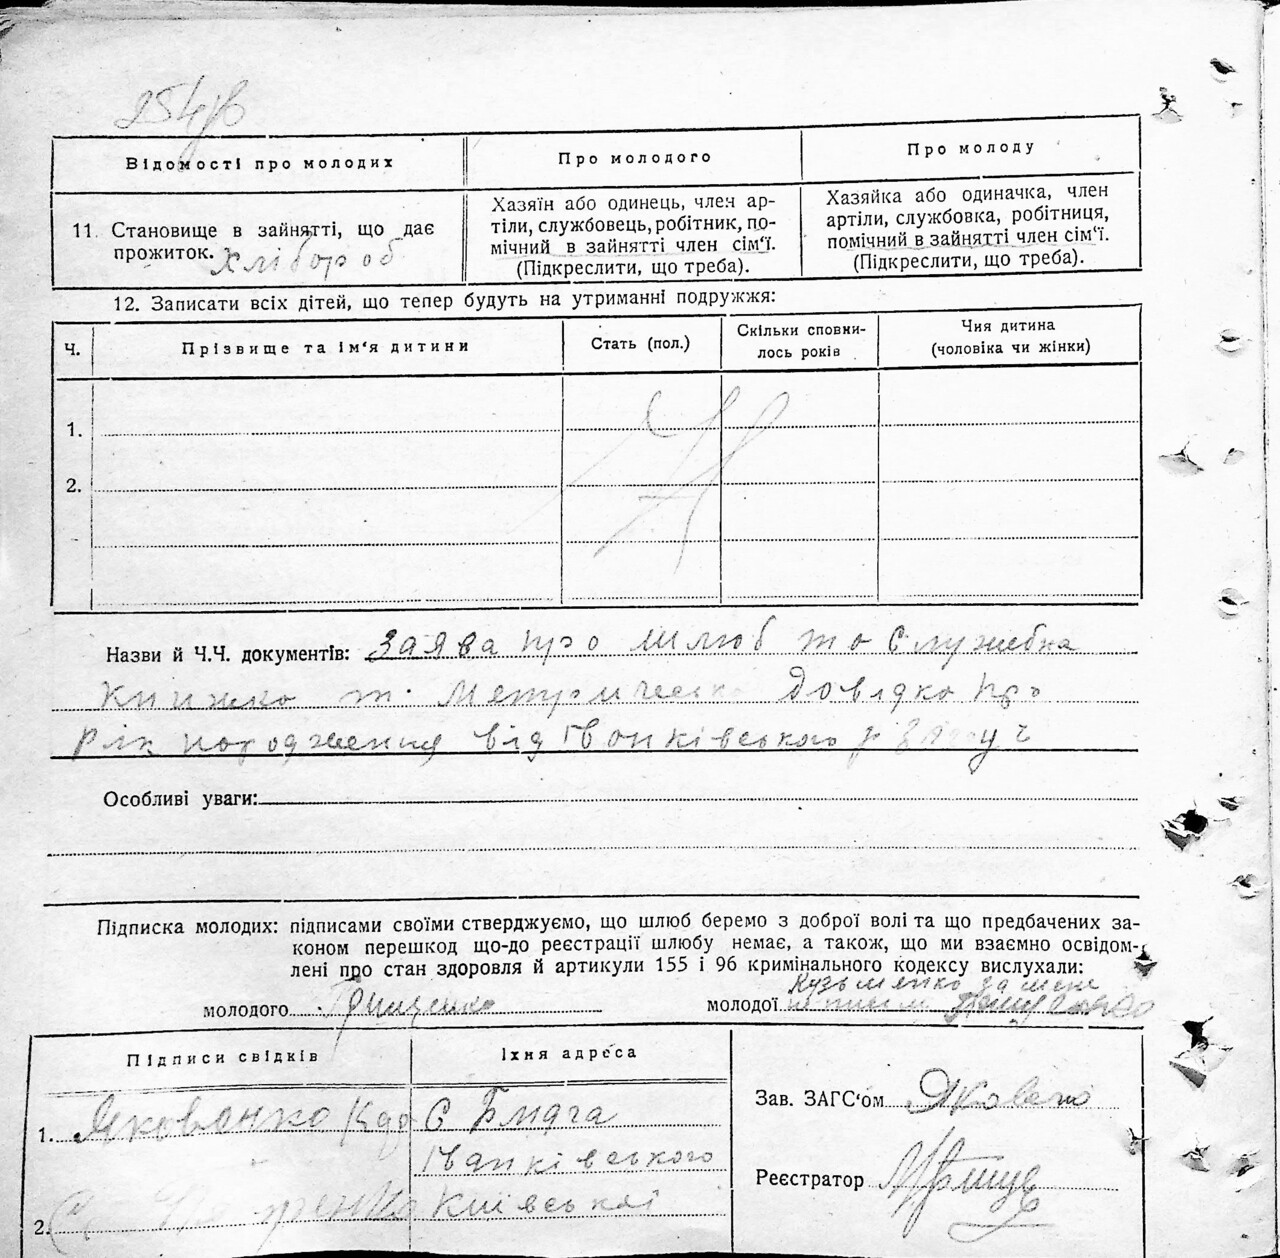 254
Відомості про молодих
Про молодого
Про молоду
11. Становище в зайнятті, що дає
прожиток. Хлібороб
Хазяїн або одинець, член ар-
тіли, службовець, робітник, по-
мічний в зайнятті член сім'ї.
(Підкреслити, що треба).
Хазяйка або одиначка, член
артіли, службовка, робітниця,
помічний в зайнятті член сім'ї.
(Підкреслити, що треба).
12. Записати всіх дітей, що тепер будуть на утриманні подружжя:
Ч.
Прізвище та ім'я дитини
Стать (пол.)
Скільки сповни-
лось років
Чия дитина
(чоловіка чи жінки)
1.
2.
Назви й Ч.Ч. документів: Заява про шлюб то Служебна
книжка т. Метрическа довідко про
рік народження від Іванківського
Особливі уваги:
Підписка молодих: підписами своїми стверджуємо, що шлюб беремо з доброї волі та що предбачених за-
коном перешкод що-до реєстрації шлюбу немає, а також, що ми взаємно освідом-
лені про стан здоровля й артикули 155 і 96 кримінального кодексу вислухали:
Кузьменко
молодого Грищенко
молодої
Підписи свідків
Їхня адреса
1. Яковенко
с Блидча
Іванківського
2.
Київської
Зав. ЗАГС'ом Яковенко
Реєстратор